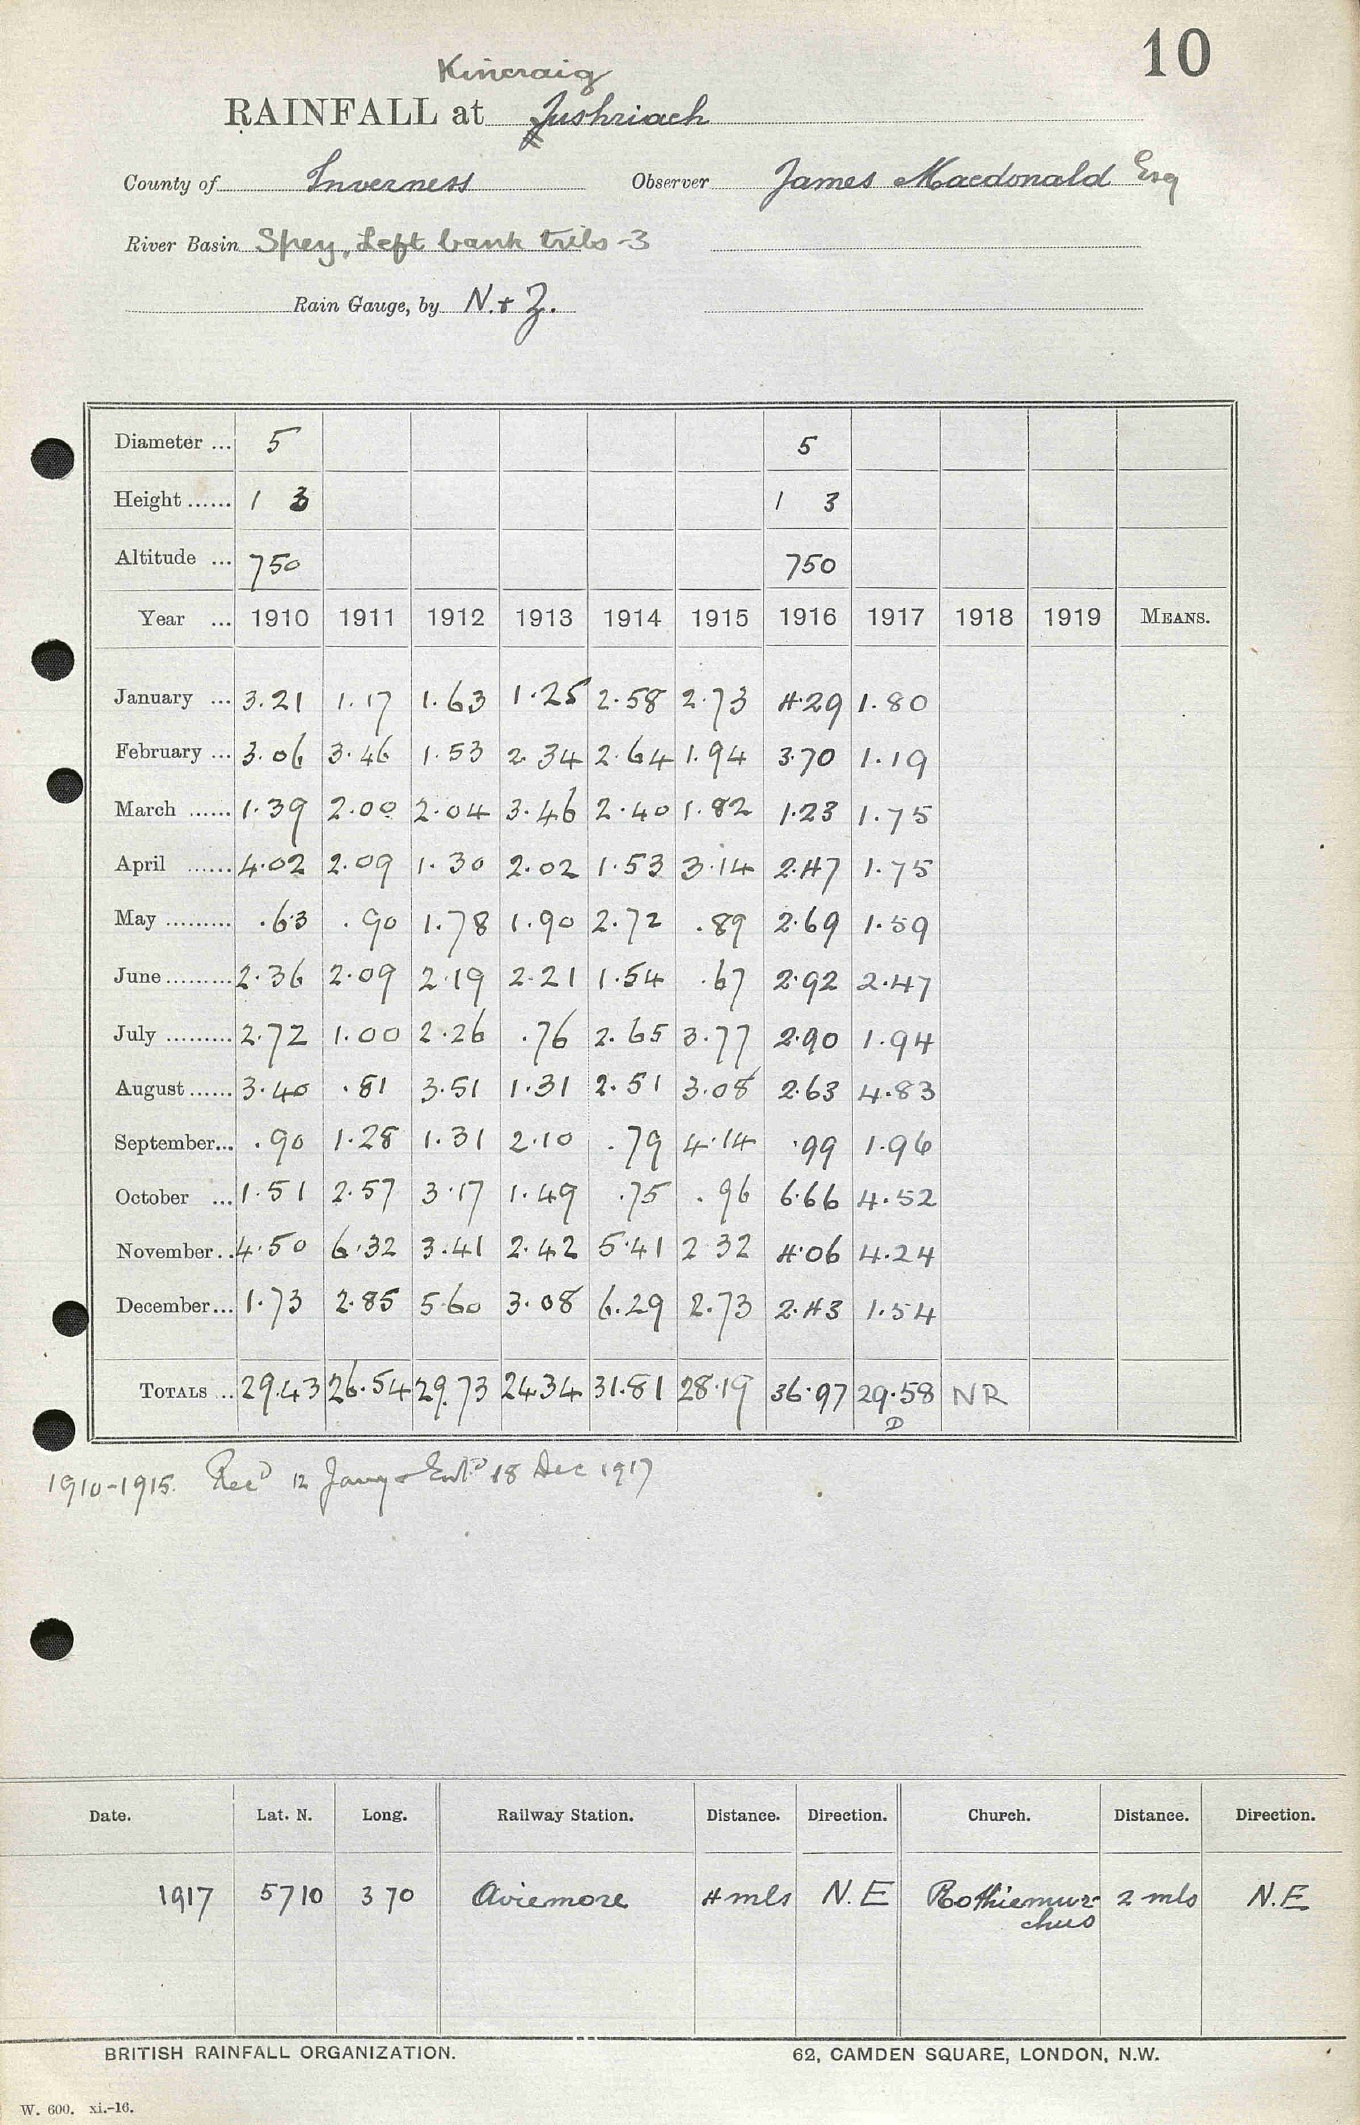 10
Kincraig
RAINFALL at Jushriach
County of Inverness Observer James Macdonald Esq
River Basin Spey, Left bank tribs -3
Rain Gauge, by N. & Z.
Diameter ... 5 5
Height ...... 1 3 1 3
Altitude ... 750 750
Year ... 1910 1911 1912 1913 1914 1915 1916 1917 1918 1919 MEANS.
January ... 3.21 1.17 1.63 1.25 2.58 2.73 4.29 1.80
February ... 3.06 3.46 1.53 2.34 2.64 1.94 3.70 1.19
March ...... 1.39 2.00 2.04 3.46 2.40 1.82 1.23 1.75
April ...... 4.02 2.09 1.30 2.02 1.53 3.14 2.47 1.75
May ......... .63 .90 1.78 1.90 2.72 .89 2.69 1.59
June ......... 2.36 2.09 2.19 2.21 1.54 .67 2.92 2.47
July ......... 2.72 1.00 2.26 .76 2.65 3.77 2.90 1.94
August ...... 3.40 .81 3.51 1.31 2.51 3.08 2.63 4.83
September... .90 1.28 1.31 2.10 .79 4.14 .99 1.96
October ... 1.51 2.57 3.17 1.49 .75 .96 6.66 4.52
November .. 4.50 6.32 3.41 2.42 5.41 2 32 4.06 4.24
December... 1.73 2.85 5.60 3.08 6.29 2.73 2.43 1.54
TOTALS .. 29.43 26.54 29.73 24.34 31.81 28.19 36.97 29.58 NR
D
1910-1915. Rec'd 12 Jany & Ent'd 18 Dec 1917
Date. Lat. N. Long. Railway Station. Distance. Direction. Church. Distance. Direction.
1917 57 10 3 70 Aviemore 4 mls N.E Rothiemur- 2 mls N.E
chus
BRITISH RAINFALL ORGANIZATION. 62, CAMDEN SQUARE, LONDON, N.W.
W. 600. xi.-16.